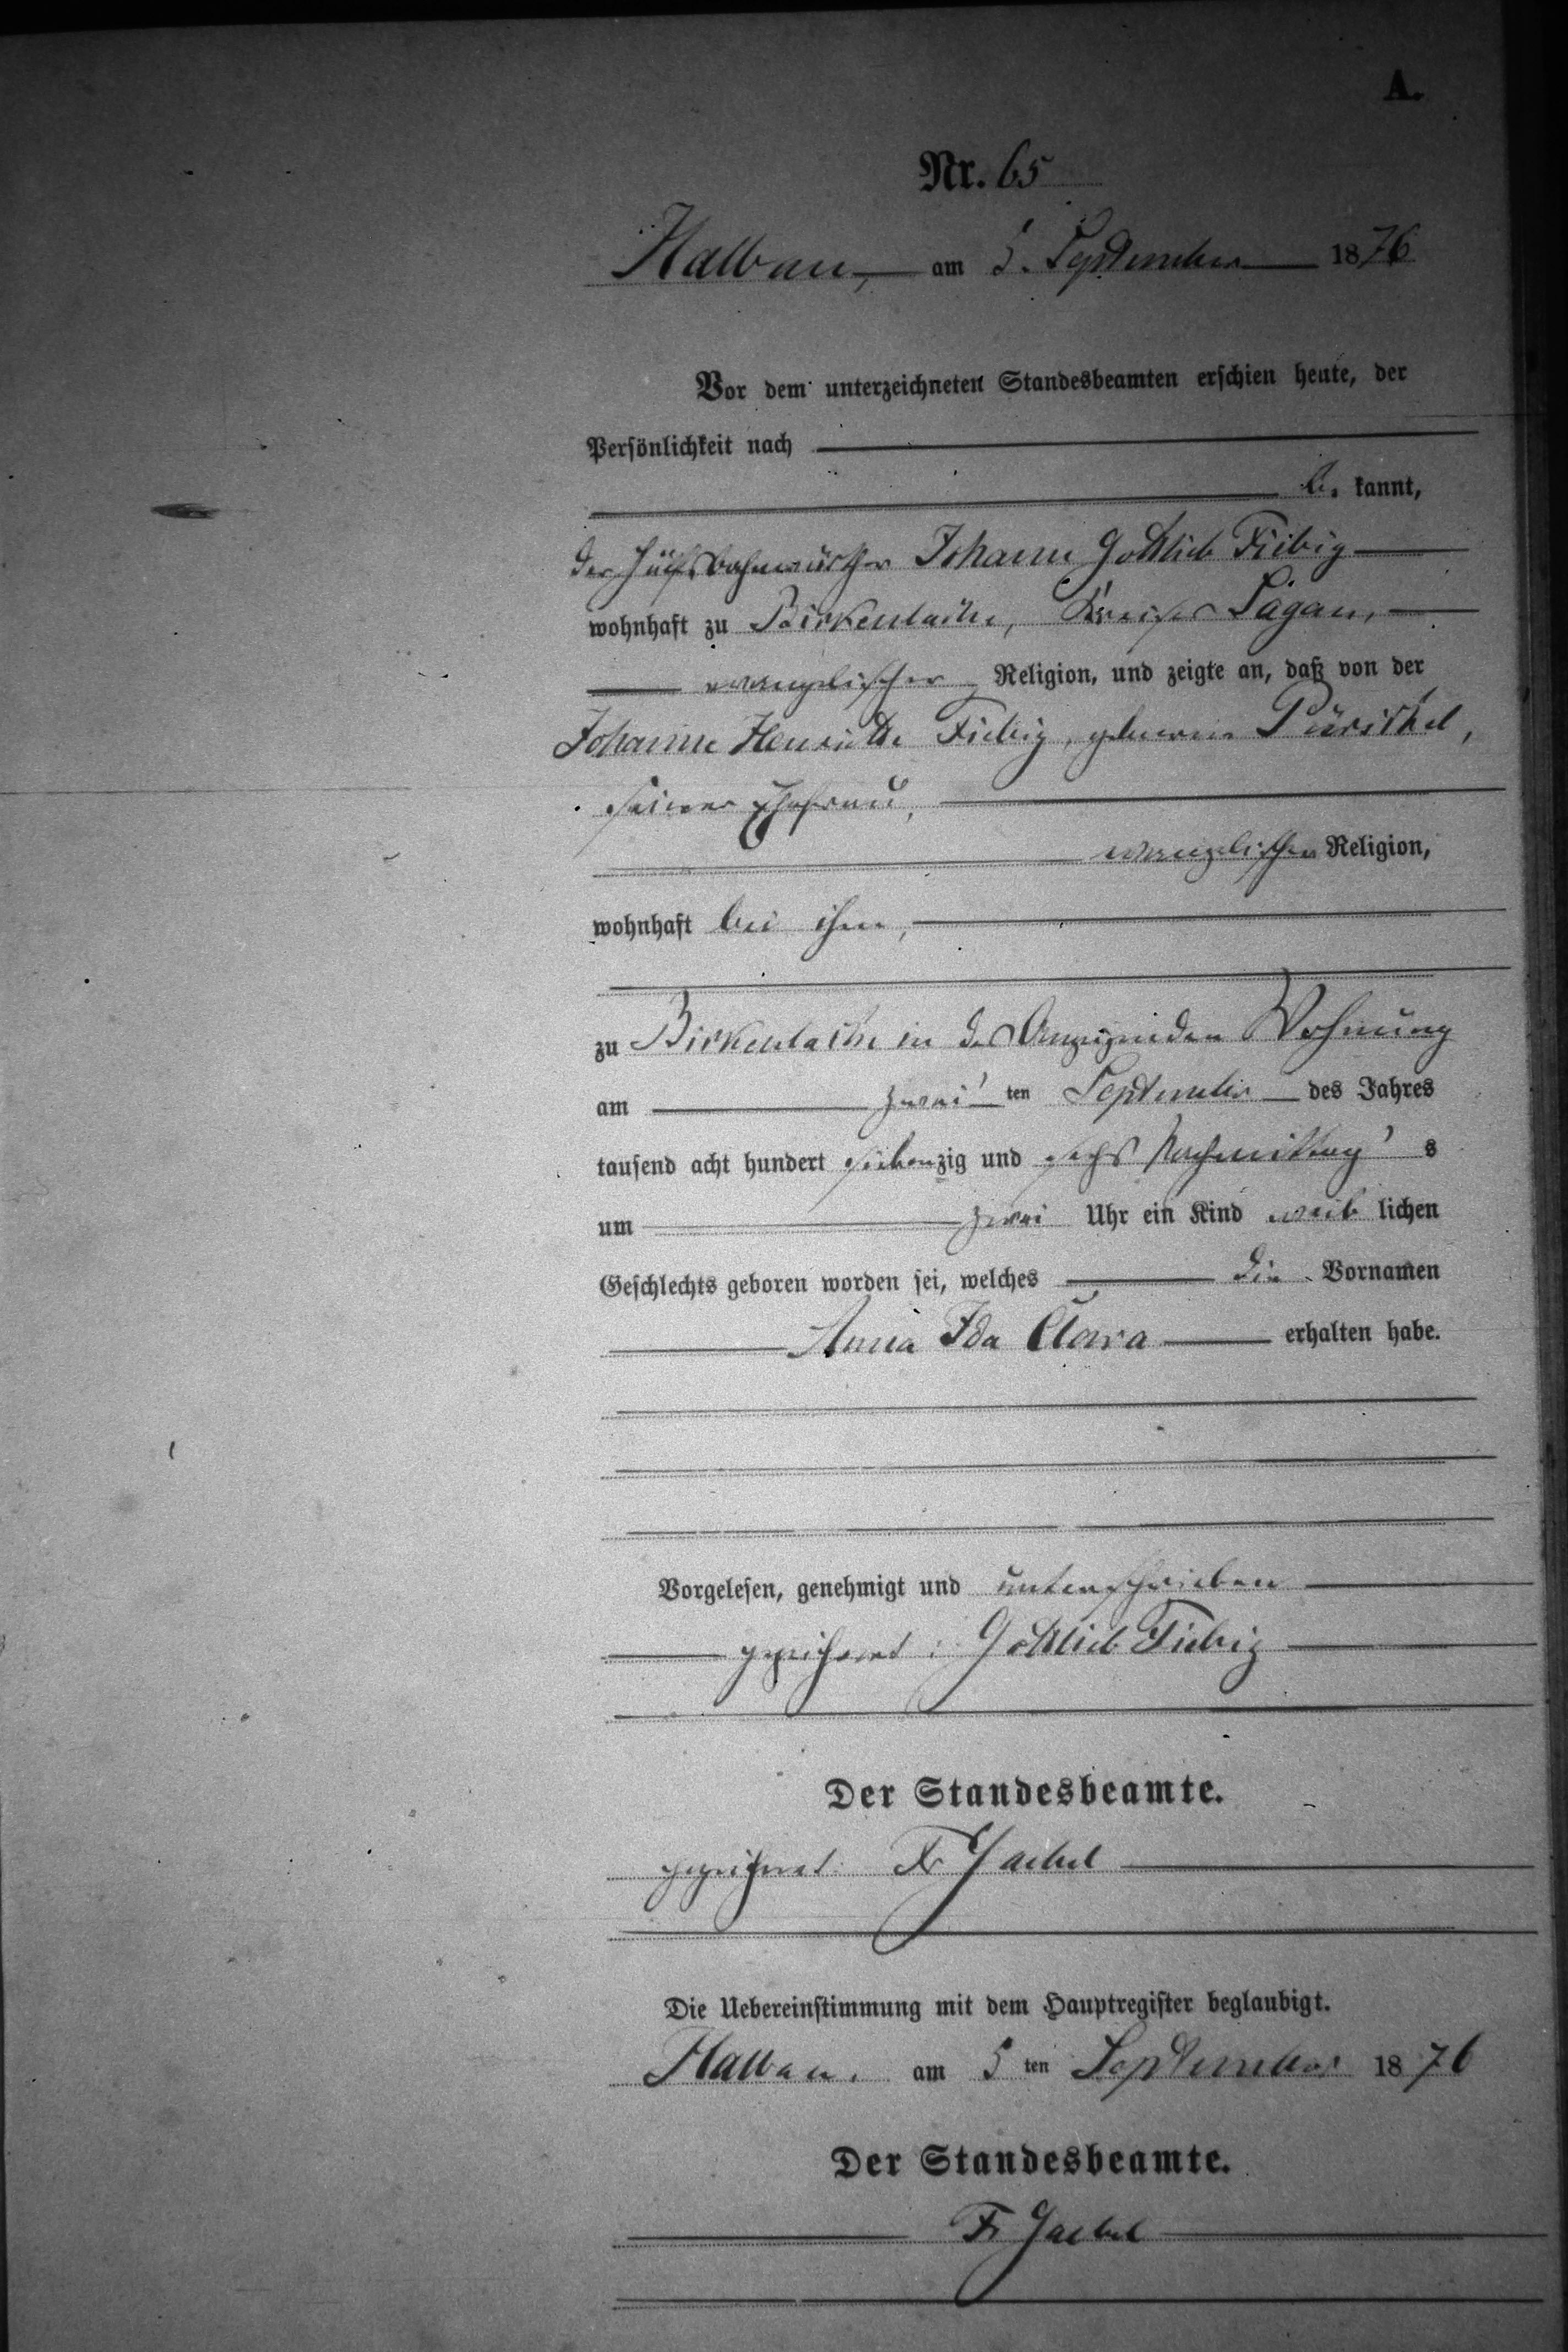 A.
Nr. 65
Halbau, am 5. September 1876
Vor dem unterzeichneten Standesbeamten erschien heute, der
Persönlichkeit nach
be kannt,
der Hülfsbahnwärter Johann Gottlieb Fiebig
wohnhaft zu Birkenlache, Kreises Sagan,
evangelischer Religion, und zeigte an, daß von der
Johanne Henriette Fiebig, geborene Pürschel,
seiner Ehefrau,
evangelischer Religion,
wohnhaft bei ihm,
zu Birkenlache in des Anzeigenden Wohnung
am zwei ten September des Jahres
tausend acht hundert siebenzig und sechs Nachmittag s
um zwei Uhr ein Kind weib lichen
Geschlechts geboren worden sei, welches die Vornamen
Anna Ida Clara erhalten habe.
Vorgelesen, genehmigt und unterschrieben
gezeichnet: Gottlieb Fiebig
Der Standesbeamte.
gezeichnet: Fr Jaekel
Die Uebereinstimmung mit dem Hauptregister beglaubigt.
Halbau, am 5 ten September 1876
Der Standesbeamte.
Fr Jaekel